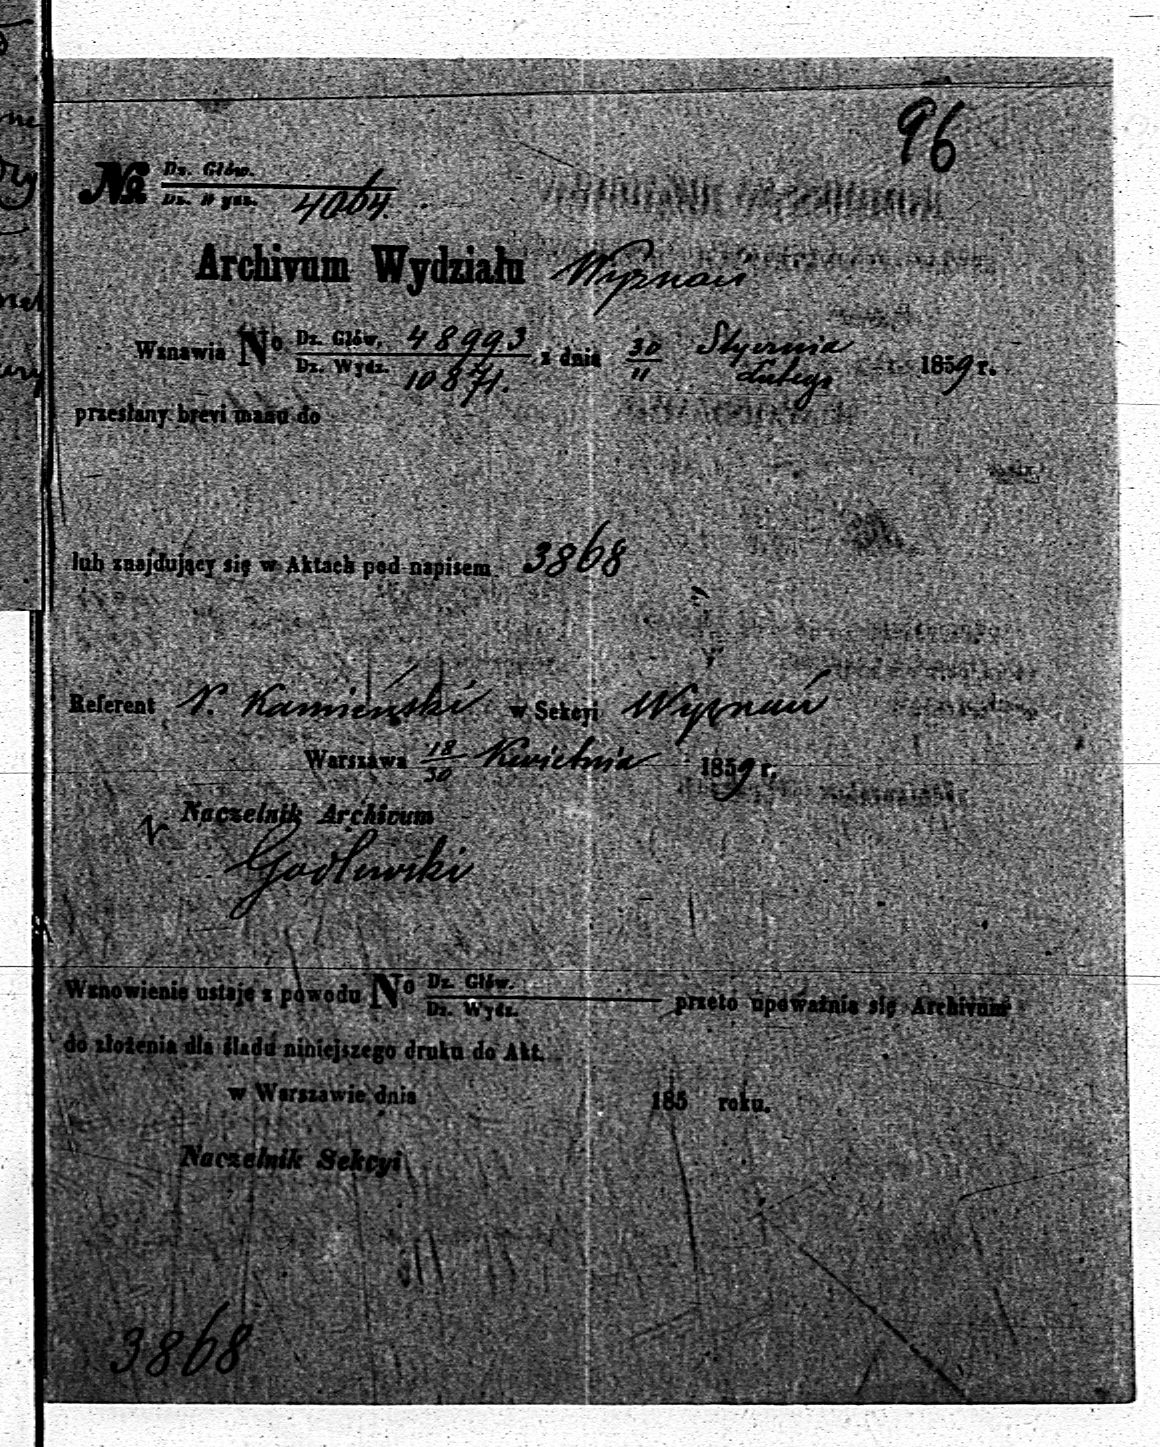 96
№ Dz. Głów.
Dz. Wydz. 4064.
Archivum Wydziału Wyznań
Wznawia No Dz. Głów. 48993 z dnia 30 Stycznia 1859 r.
Dz. Wydz. 10871. 11 Lutego
przesłany brevi manu do
lub znajdujący się w Aktach pod napisem 3868
Referent N. Kamieński w Sekcyi Wyznań
Warszawa 18/30 Kwietnia 1859 r.
Naczelnik Archivum
Godlewski
Wznowienie ustaje z powodu No Dz. Głów. przeto upoważnia się Archivum
Dz. Wydz.
do złożenia dla śladu niniejszego druku do Akt.
w Warszawie dnia 185 roku.
Naczelnik Sekcyi
3868